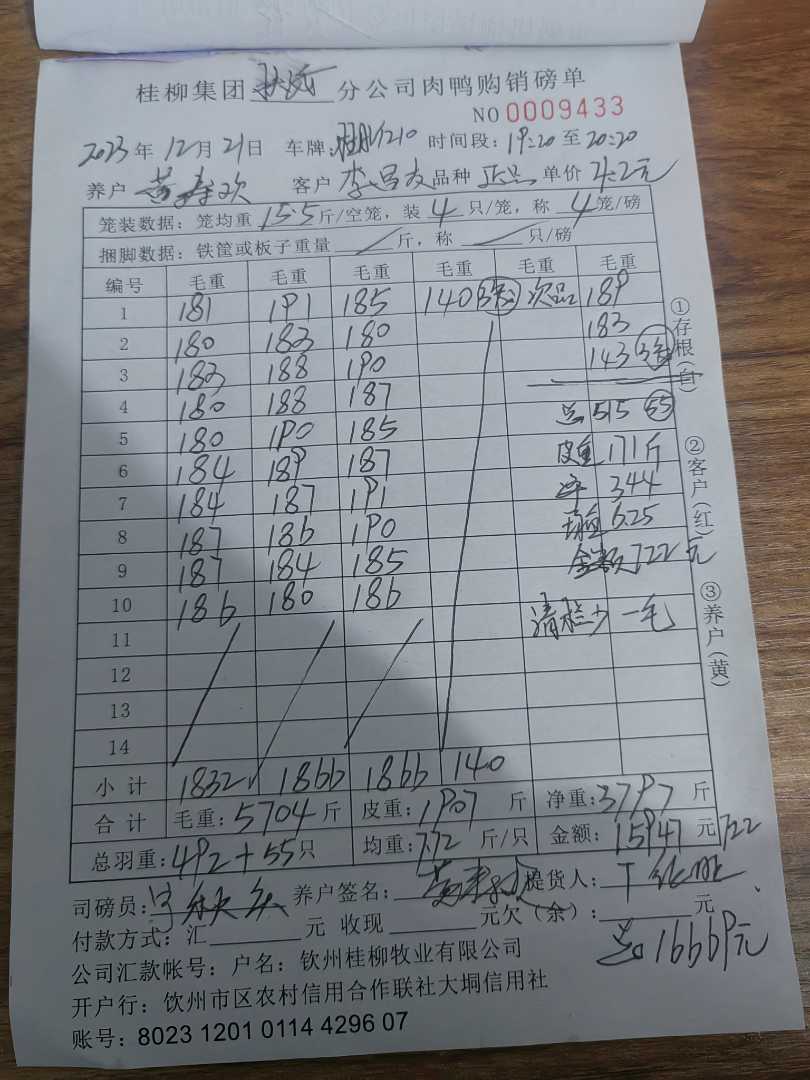 桂柳集团 分公司肉鸭购销磅单
NO 0009433
2023年12月21日 车牌: 210 时间段:19:20至20:20
养户 黄春欢 客户 李昌友 品种 正品 单价 4.2元
笼装数据：笼均重 15.5 斤/空笼，装 4 只/笼，称 4 笼/磅
捆脚数据：铁筐或板子重量 / 斤，称 / 只/磅
编号 毛重 毛重 毛重 毛重 毛重 毛重
1 181 191 185 140 次品 189
2 180 183 180 183
3 183 188 190 143
4 180 188 187
5 180 190 185 总 515 55
6 184 189 187 皮重 171斤
7 184 187 191 净 344
8 187 186 190 均重 6.25
9 187 184 185 金额 722元
10 186 180 186
11 清栏少一毛
12
13
14
小计 1832 1866 1866 140
合计 毛重: 5704 斤 皮重: 1907 斤 净重: 3797 斤
总羽重: 492+55 只 均重: 7.72 斤/只 金额: 15947 元 722
①存根(白) ②客户(红) ③养户(黄)
司磅员: 养户签名: 提货人:
付款方式：汇 元 收现 元欠（余）: 元
总 16669元
公司汇款帐号：户名：钦州桂柳牧业有限公司
开户行：钦州市区农村信用合作联社大垌信用社
账号：8023 1201 0114 4296 07